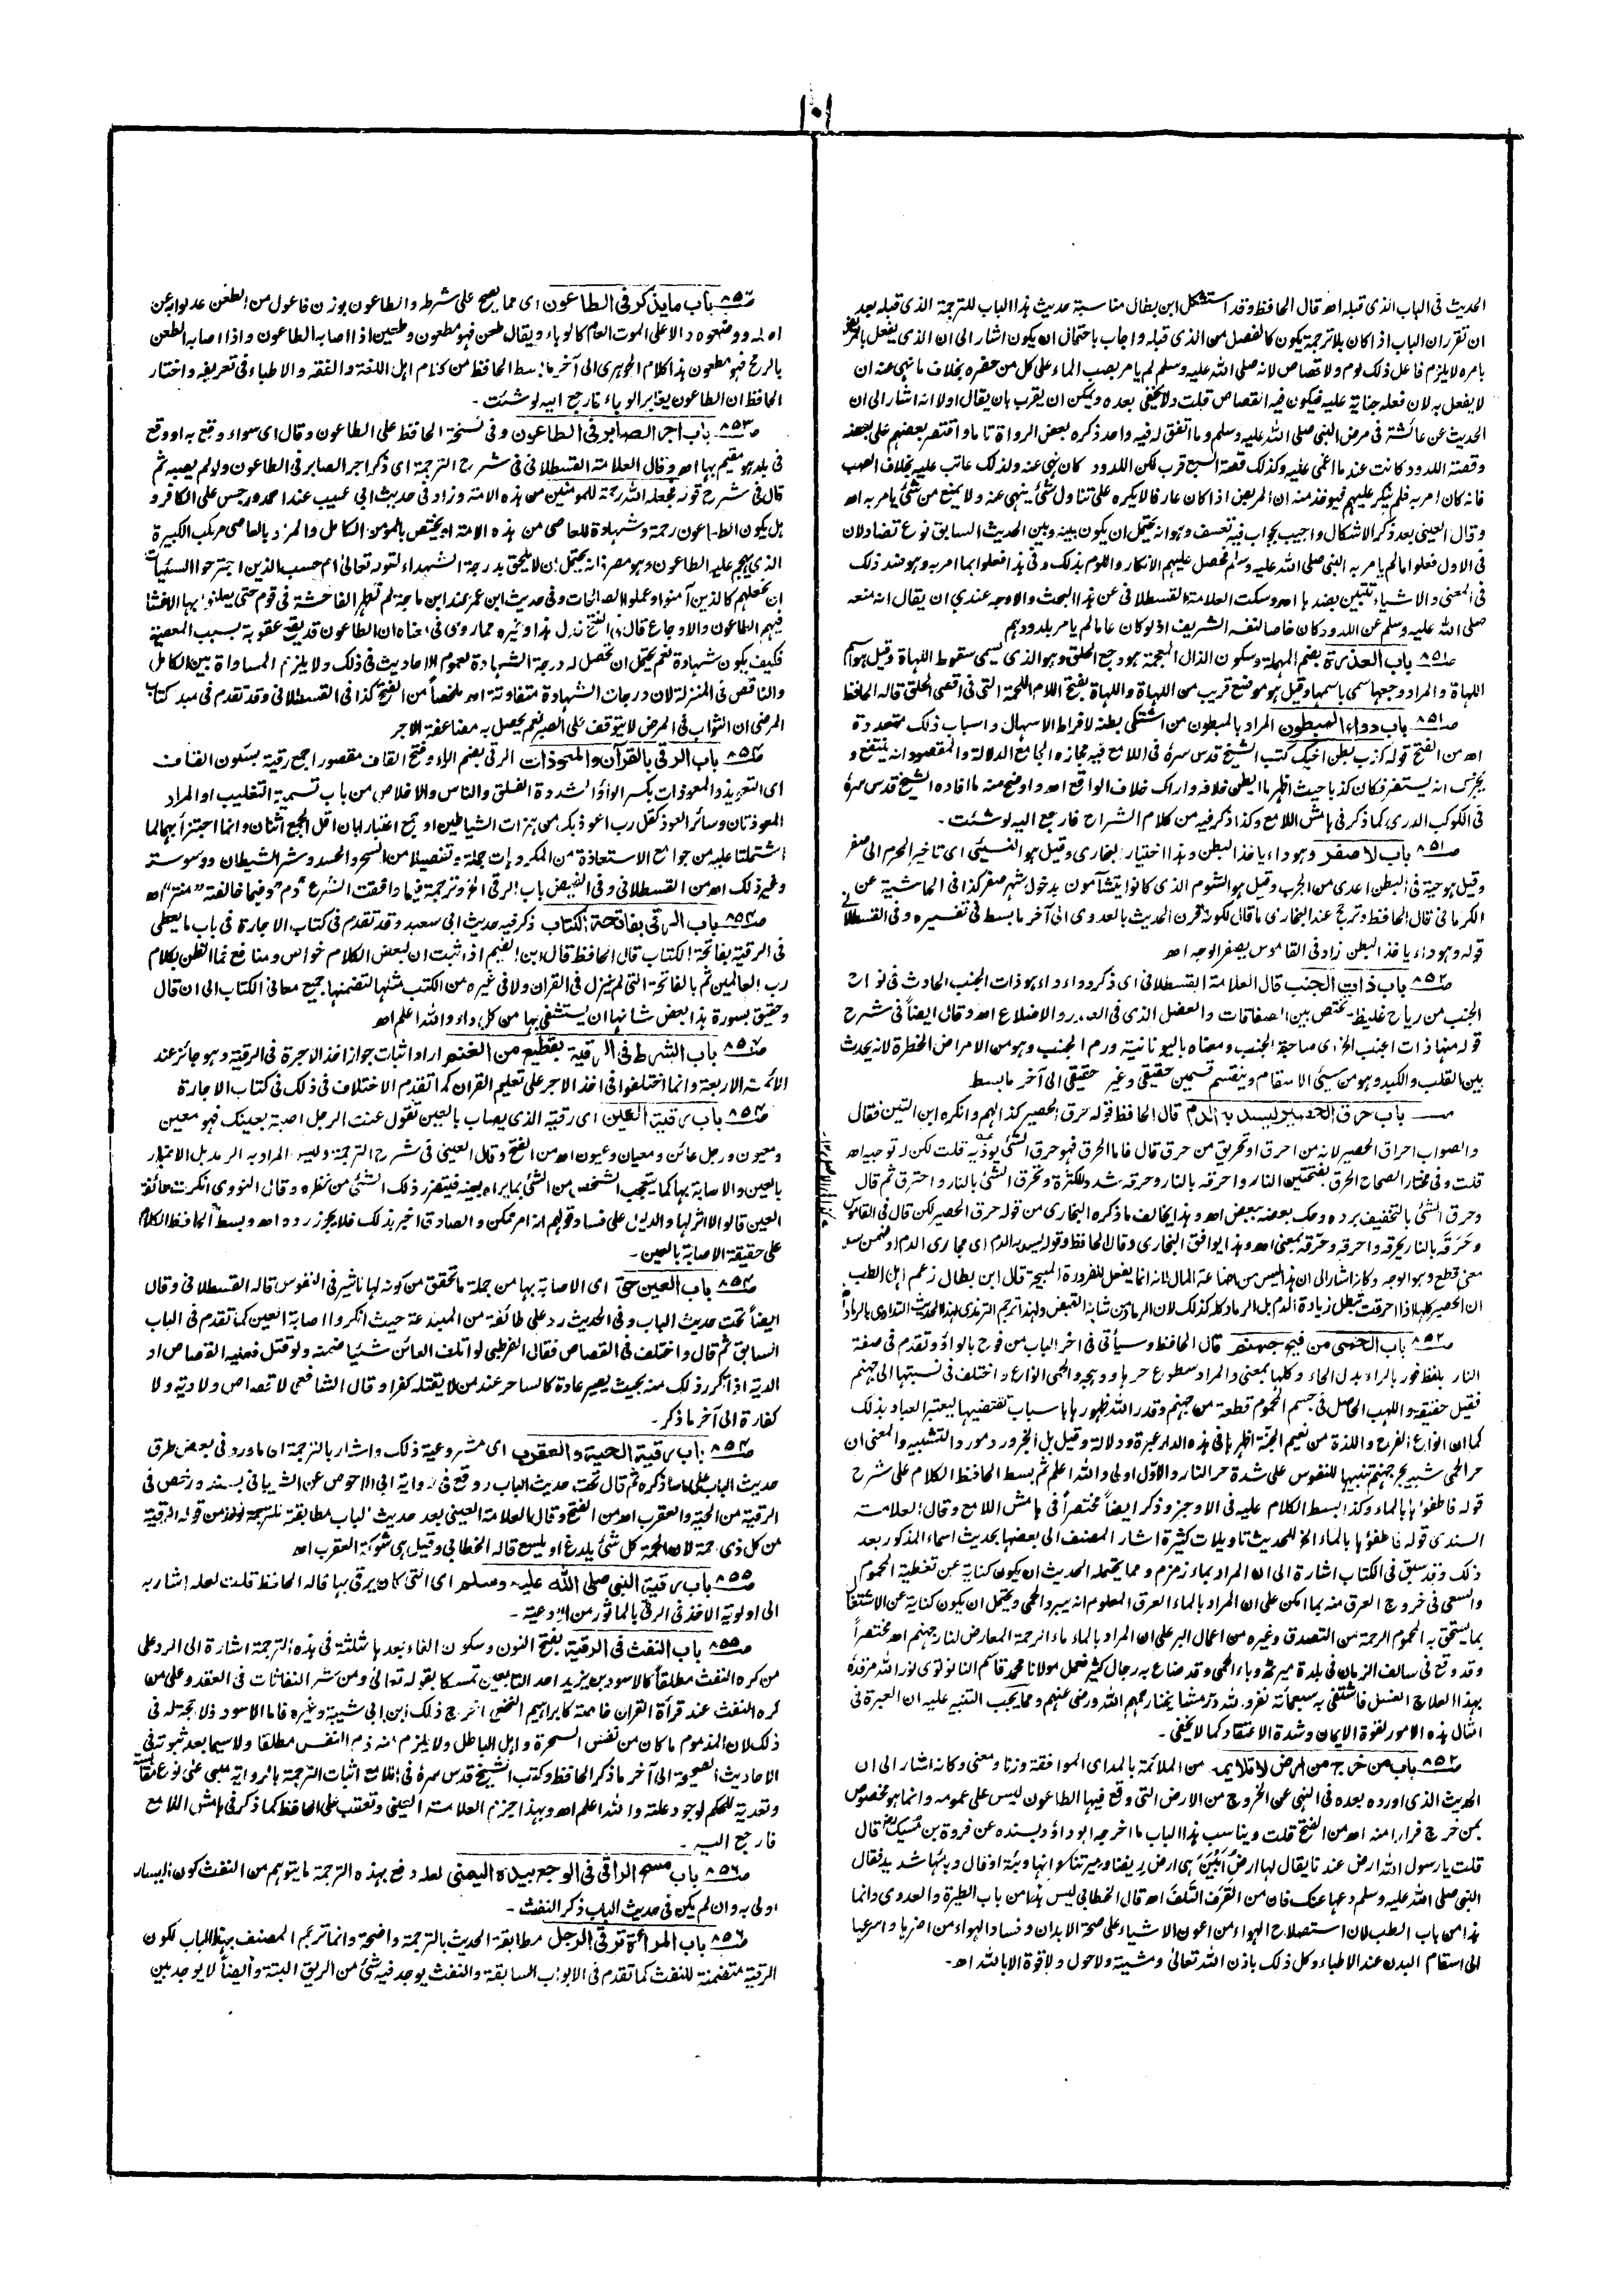 ١٠١
الحديث فى الباب الذى قبله اھ قال الحافظ وقد استشكل ابن بطال مناسبة حديث هذا الباب للترجمة الذى قبله بعد
ان تقرر ان الباب اذا كان بلا ترجمة يكون كالفصل من الذى قبله واجاب باحتمال ان يكون اشار الى ان الذى يفعل بالمريض
بامره لا يلزم فاعل ذلك لوم ولا قصاص لانه صلى الله عليه وسلم لم يامر بصب الماء على كل من حضره بخلاف ما نهى عنه ان
لا يفعل به لان فعله جناية عليه فيكون فيه القصاص قلت ولا يخفى بعده ويمكن ان يقرب بان يقال اولا انه اشار الى ان
الحديث عن عائشة فى مرض النبى صلى الله عليه وسلم وما اتفق له فيه واحد ذكره بعض الرواة تاما واقتصر بعضهم على بعضه
وقصة اللدود كانت عند ما اغمى عليه وكذلك قصة السبع قرب لكن اللدود كان نهى عنه ولذلك عاتب عليه بخلاف الصب
فانه كان امر به فلم ينكر عليهم فيوخذ منه ان المريض اذا كان عارفا لا يكره على تناول شئ ينهى عنه ولا يمنع من شئ يامر به اھ
وقال العينى بعد ذكر الاشكال واجيب بجواب فيه تعسف وهو انه يحتمل ان يكون بينه وبين الحديث السابق نوع تضاد لان
فى الاول فعلوا ما لم يامر به النبى صلى الله عليه وسلم فحصل عليهم الانكار واللوم بذلك وفى هذا فعلوا بما امر به وهو ضد ذلك
فى المعنى والاشياء تتبين بضدها اھ وسكت العلامة القسطلانى عن هذا البحث والاوجه عندى ان يقال انه منعه
صلى الله عليه وسلم عن اللدود كان خاصا لنفسه الشريف اذ لو كان عاما لم يامر بلدودهم
صـ٨٥١ باب العذرة بضم المهملة وسكون الذال المعجمة هو وجع الحلق وهو الذى يسمى سقوط اللهاة وقيل هو اسم
اللهاة والمراد وجعها سمى باسمها وقيل هو موضع قريب من اللهاة واللهاة بفتح اللام اللحمة التى فى اقصى الحلق قاله الحافظ
صـ٨٥١ باب دواء المبطون المراد بالمبطون من اشتكى بطنه لافراط الاسهال واسباب ذلك متعددة
اھ من الفتح قوله كذب بطن اخيك كتب الشيخ قدس سره فى اللامع فيه مجازه الجامع الدلالة والمقصود انه ينتفع و
يجزى انه يستضر فكان كذبا حيث اظهر ما ابطن خلافه واراك خلاف الواقع اھ واوضح منه ما افاده الشيخ قدس سره
فى الكوكب الدرى كما ذكر فى هامش اللامع وكذا ذكر فيه من كلام الشراح فارجع اليه لو شئت ۔
صـ٨٥١ باب لا صفر وهو داء ياخذ البطن وهذا اختيار البخارى وقيل هو النسيئ اى تاخير المحرم الى صفر
وقيل هو حية فى البطن اعدى من الجرب وقيل هو الشوم الذى كانوا يتشآمون بدخول شهر صفر كذا فى الحاشية عن
الكرمانى قال الحافظ وترجح عند البخارى ما قال لكونه قرن الحديث بالعدوى الى آخر ما بسط فى تفسيره وفى القسطلانى
قوله وهو داء ياخذ البطن زاد فى القاموس يصفر الوجه اھ
صـ٨٥٢ باب ذات الجنب قال العلامة القسطلانى اى ذكر دواء داء هو ذات الجنب الحادث فى نواح
الجنب من رياح غليظ تختص بين الصفاقات والعضل الذى فى الصدر والاضلاع اھ وقال ايضاً فى شرح
قوله منها ذات الجنب الخ اى صاحبة الجنب ومعناه باليونانية ورم الجنب وهو من الامراض الخطرة لانه يحدث
بين القلب والكبد وهو من سيئ الاسقام وينقسم قسمين حقيقى وغير حقيقى الى آخر ما بسط
صـ باب حرق الحصير ليسد به الدم قال الحافظ قوله حرق الحصير كذا لهم وانكره ابن التين فقال
والصواب احراق الحصير لانه من احرق او تحريق من حرق قال فاما الحرق فهو حرق الشئ يوذيه قلت لكن له توجيه اھ
قلت وفى مختار الصحاح الحرق بفتحتين النار واحرقه بالنار وحرقه شدد للكثرة وتحرق الشئ بالنار واحترق ثم قال
وحرق الشئ بالتخفيف برده وحك بعضه ببعض اھ وهذا يخالف ما ذكره البخارى من قوله حرق الحصير لكن قال فى القاموس
وحَرَقَه بالنار يحرقه واحرقه وحرّقه بمعنى اھ وهذا يوافق البخارى وقال الحافظ وقوله ليسد به الدم اى مجارى الدم او ضمن سد
معنى قطع وهو الوجه وكانه اشار الى ان هذا ليس من اضاعة المال لانه انما يفعل للضرورة المبيحة قال ابن بطال زعم اهل الطب
ان الحصير كلها اذا احرقت تبطل زيادة الدم بل الرماد كله كذلك لان الرماد من شانه القبض ولهذا ترجم الترمذى لهذا الحديث التداوى بالرماد
صـ٨٥٢ باب الحمى من فيح جهنم قال الحافظ وسيأتى فى اخر الباب من فوح بالواو وتقدم فى صفة
النار بلفظ فور بالراء بدل الحاء وكلها بمعنى والمراد سطوع حرها ووهجه والحمى انواع واختلف فى نسبتها الى جهنم
فقيل حقيقة واللهب الحاصل فى جسم المحموم قطعة من جهنم وقدر الله ظهورها باسباب تقتضيها ليعتبر العباد بذلك
كما ان انواع الفرح واللذة من نعيم الجنة اظهرها فى هذه الدار عبرة ودلالة وقيل بل الخبر ورد مورد التشبيه والمعنى ان
حر الحمى شبيه بحر جهنم تنبيها للنفوس على شدة حر النار والاوّل اولى والله اعلم ثم بسط الحافظ الكلام على شرح
قوله فاطفؤها بالماء وكذا بسط الكلام عليه فى الاوجز وذكر ايضاً مختصراً فى هامش اللامع وقال العلامت
السندى قوله فاطفؤها بالماء الخ للحديث تاويلات كثيرة اشار المصنف الى بعضها بحديث اسماء المذكور بعد
ذلك وقد سبق فى الكتاب اشارة الى ان المراد بماء زمزم ومما يحتمله الحديث ان يكون كناية عن تغطية المحموم
والسعى فى خروج العرق منه بما امكن على ان المراد بالماء العرق المعلوم انه يبرد الحمى ويحتمل ان يكون كناية عن الاشتغال
بما يستحق به المحموم الرحمة من التصدق وغيره من اعمال البر على ان المراد بالماء ماء الرحمة المعارض لنار جهنم اھ مختصراً
وقد وقع فى سالف الزمان فى بلدة ميرٹھ وباء الحمى وقد ضاع به رجال كثير فعمل مولانا محمد قاسم النانوتوى نور الله مرقده
بهذا العلاج الغسل فاشتفى به سبحانه نفرو لله در مشايخنا رحمهم الله ورضى عنهم ومما يجب التنبيه عليه ان العبرة فى
امثال هذه الامور لقوة الايمان وشدة الاعتقاد كما لا يخفى ۔
صـ٨٥٢ باب من خرج من ارض لا تلايمه من الملائمة بالمد اى الموافقة وزنا ومعنى وكانه اشار الى ان
الحديث الذى اورده بعده فى النهى عن الخروج من الارض التى وقع فيها الطاعون ليس على عمومه وانما هو مخصوص
بمن خرج فرارا منه اھ من الفتح قلت ويناسب هذا الباب ما اخرجه ابو داؤد بسنده عن فروة بن مُسَيك قال
قلت يا رسول الله ارض عندنا يقال لها ارضُ اَبْيَنَ هى ارض ريفنا وميرتنا وانها وبئة او قال وبئها شديد فقال
النبى صلى الله عليه وسلم دعها عنك فان من القَرَف التَلَف اھ قال الخطابى ليس هذا من باب الطيرة والعدوى وانما
هذا من باب الطب لان استصلاح الهواء من اعون الاشياء على صحة الابدان وفساد الهواء من اضرها واسرعها
الى اسقام البدن عند الاطباء وكل ذلك باذن الله تعالى ومشيته ولا حول ولا قوة الا بالله اھ ۔
صـ٨٥٣ باب ما يذكر فى الطاعون اى مما يصح على شرطه والطاعون بوزن فاعول من الطعن عدلوا به عن
اصله ووضعوه دالا على الموت العام كالوباء ويقال طعن فهو مطعون وطعين اذا اصابه الطاعون واذا اصابه الطعن
بالرمح فهو مطعون هذا كلام الجوهرى الى آخر ما بسط الحافظ من كلام اهل اللغة والفقه والاطباء فى تعريفه واختار
الحافظ ان الطاعون يغاير الوباء فارجع اليه لو شئت ۔
صـ٨٥٣ باب اجر الصابر فى الطاعون وفى نسخة الحافظ على الطاعون وقال اى سواء وقع به او وقع
فى بلد هو مقيم بها اھ وقال العلامة القسطلانى فى شرح الترجمة اى ذكر اجر الصابر فى الطاعون ولو لم يصبه ثم
قال فى شرح قوله فجعله الله رحمة للمومنين من هذه الامة وزاد فى حديث ابى عسيب عند احمد ورجس على الكافر و
هل يكون الطاعون رحمة وشهادة للعاصى من هذه الامة او يختص بالمومن الكامل والمراد بالعاصى مرتكب الكبيرة
الذى يهجم عليه الطاعون وهو مصر فانه يحتمل ان لا يلحق بدرجة الشهداء لقوله تعالى ام حسب الذين اجترحوا السيئات
ان نجعلهم كالذين آمنوا وعملوا الصالحات وفى حديث ابن عمر عند ابن ماجة لم تظهر الفاحشة فى قوم حتى يعلنوا بها الا فشا
فيهم الطاعون والاوجاع قال فى الفتح فدل هذا وغيره مما روى فى معناه ان الطاعون قد يقع عقوبة بسبب المعصية
فكيف يكون شهادة نعم يحتمل ان تحصل له درجة الشهادة لعموم الاحاديث فى ذلك ولا يلزم المساواة بين الكامل
والناقص فى المنزلة لان درجات الشهادة متفاوتة اھ ملخصاً من الفتح كذا فى القسطلانى وقد تقدم فى مبدء كتاب
المرضى ان الثواب فى المرض لا يتوقف على الصبر نعم يحصل به مضاعفة الاجر
صـ٨٥٤ باب الرقى بالقرآن والمعوذات الرقى بضم الراء وفتح القاف مقصور اجمع رقية بسكون القاف
اى التعويذ والمعوذات بكسر الواو المشددة الفلق والناس والاخلاص من باب تسمية التغليب او المراد
المعوذتان وسائر العوذ كقل رب اعوذ بك من همزات الشياطين او جمع اعتبارا بان اقل الجمع اثنان وانما اجتزأ بهما لما
اشتملتا عليه من جوامع الاستعاذة من المكروهات جملة وتفصيلا من السحر والحسد وشر الشيطان ووسوسته
وغير ذلك اھ من القسطلانى وفى الفيض باب الرقى الخ وترجمة فيما وافقت الشرع "دم" وفيما خالفته "منتر" اھ
صـ٨٥٤ باب الرقى بفاتحة الكتاب ذكر فيه حديث ابى سعيد وقد تقدم فى كتاب الاجارة فى باب ما يعطى
فى الرقية بفاتحة الكتاب قال الحافظ قال ابن القيم اذا ثبت ان لبعض الكلام خواص ومنافع فما الظن بكلام
رب العالمين ثم بالفاتحة التى لم ينزل فى القران ولا فى غيره من الكتب مثلها لتضمنها جميع معانى الكتاب الى ان قال
وحقيق بسورة هذا بعض شانها ان يستشفى بها من كل داء والله اعلم اھ
صـ٨٥٤ باب الشرط فى الرقية بقطيع من الغنم اراد اثبات جواز اخذ الاجرة فى الرقية وهو جائز عند
الائمة الاربعة وانما اختلفوا فى اخذ الاجر على تعليم القران كما تقدم الاختلاف فى ذلك فى كتاب الاجارة
صـ٨٥٤ باب رقية العين اى رقية الذى يصاب بالعين تقول عنت الرجل اصبته بعينك فهو معين
ومعيون ورجل عائن ومعيان وعيون اھ من الفتح وقال العينى فى شرح الترجمة وليس المراد به الرمد بل الاضرار
بالعين والاصابة بها كما يتعجب الشخص من الشئ بما يراه بعينه فيتضرر ذلك الشئ من نظره وقال النووى انكرت طائفة
العين قالوا لا اثر لها والدليل على فساد قولهم انه امر ممكن والصادق اخبر بذلك فلا يجوز رده اھ وبسط الحافظ الكلام
على حقيقة الاصابة بالعين ۔
صـ٨٥٤ باب العين حق اى الاصابة بها من جملة ما تحقق من كونه لها تاثير فى النفوس قاله القسطلانى وقال
ايضاً تحت حديث الباب وفى الحديث رد على طائفة من المبتدعة حيث انكروا اصابة العين كما تقدم فى الباب
السابق ثم قال واختلف فى القصاص فقال القرطبى لو اتلف العائن شيئا ضمنه ولو قتل فعليه القصاص او
الدية اذا تكرر ذلك منه بحيث يصير عادة كالساحر عند من لا يقتله كفرا وقال الشافعى لا قصاص ولا دية ولا
كفارة الى آخر ما ذكر ۔
صـ٨٥٤ باب رقية الحية والعقرب اى مشروعية ذلك واشار بالترجمة ان ما ورد فى بعض طرق
حديث الباب على ما ذكره ثم قال تحت حديث الباب ووقع فى رواية ابى الاحوص عن الشيبانى بسنده رخص فى
الرقية من الحية والعقرب اھ من الفتح وقال العلامة العينى بعد حديث الباب مطابقته للترجمة توخذ من قوله الرقية
من كل ذى حمة لان الحمة كل شئ يلدغ او يلسع قاله الخطابى وقيل هى شوكة العقرب اھ
صـ٨٥٥ باب رقية النبى صلى الله عليه وسلم اى التى كان يرقى بها قاله الحافظ قلت لعله اشار به
الى اولوية الاخذ فى الرقى بالماثور من الادعية ۔
صـ٨٥٥ باب النفث فى الرقية بفتح النون وسكون الفاء بعدها مثلثة فى هذه الترجمة اشارة الى الرد على
من كره النفث مطلقاً كالاسود بن يزيد احد التابعين تمسكا بقوله تعالى ومن شر النفاثات فى العقد وعلى من
كره النفث عند قرأة القران خاصة كابراهيم النخعى اخرج ذلك ابن ابى شيبة وغيره فاما الاسود فلا حجة له فى
ذلك لان المذموم ما كان من نفث السحرة واهل الباطل ولا يلزم منه ذم النفث مطلقا ولا سيما بعد ثبوته فى
الاحاديث الصحيحة الى آخر ما ذكر الحافظ وكتب الشيخ قدس سره فى اللامع اثبات الترجمة بالرواية مبنى على نوع مقايسة
وتعدية للحكم لوجود علته والله اعلم اھ وبهذا جزم العلامة العينى وتعقب على الحافظ كما ذكر فى هامش اللامع
فارجع اليه ۔
صـ٨٥٦ باب مسح الراقى فى الوجع بيده اليمنى لعله دفع بهذه الترجمة ما يتوهم من النفث كون اليسار
اولى به وان لم يكن فى حديث الباب ذكر النفث ۔
صـ٨٥٦ باب المرأة ترقى الرجل مطابقة الحديث بالترجمة واضحة وانما ترجم المصنف بهذا الباب لكون
الرقية متضمنة للنفث كما تقدم فى الابواب السابقة والنفث يوجد فيه شئ من الريق البتة وايضاً لا يوجد بين